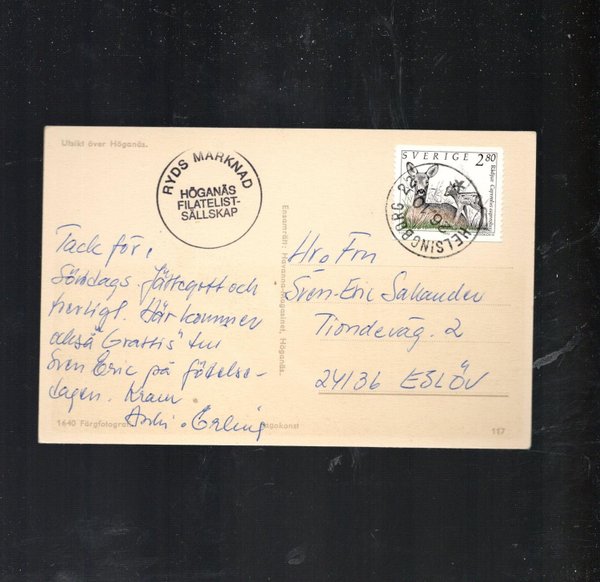 Utsikt över Höganäs.
RYDS MARKNAD
HÖGANÄS
FILATELIST-
SÄLLSKAP
SVERIGE 2.80
Rådjur Capreolus capreolus
HELSINGBORG
Tack för,
Söndags. Jättegott och
herligt. Här kommer
också "Grattis" till
Sven Eric på födelse-
dagen. Kram
Erling
Ensamrätt: Havanna-Magasinet, Höganäs.
Hr o Fru
Sven-Eric Sakander
Tiondeväg. 2
24136 ESLÖV
1640 Färgfotograf
117